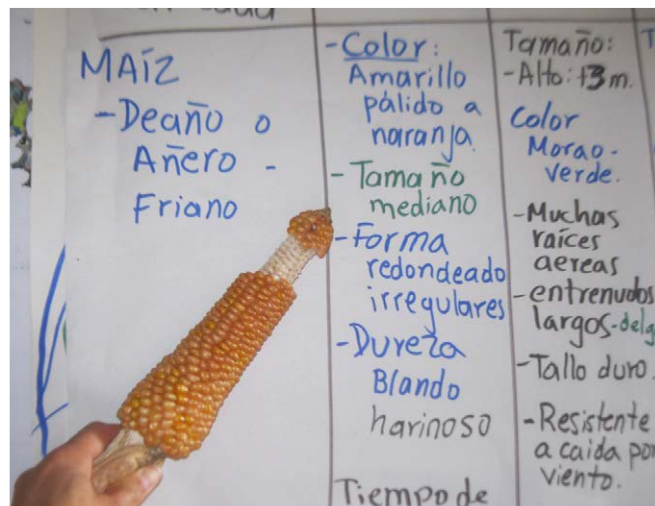 MAÍZ
-Deaño o
Añero -
Friano
-Color:
Amarillo
pálido a
naranja.
-Tamaño
mediano
-Forma
redondeado
irregulares
-Dureza
Blando
harinoso
Tiempo de
Tamaño:
-Alto: +3m.
Color
Morao-
verde.
-Muchas
raíces
aereas
-entrenudos
largos-delg
-Tallo duro.
-Resistente
a caida por
viento.